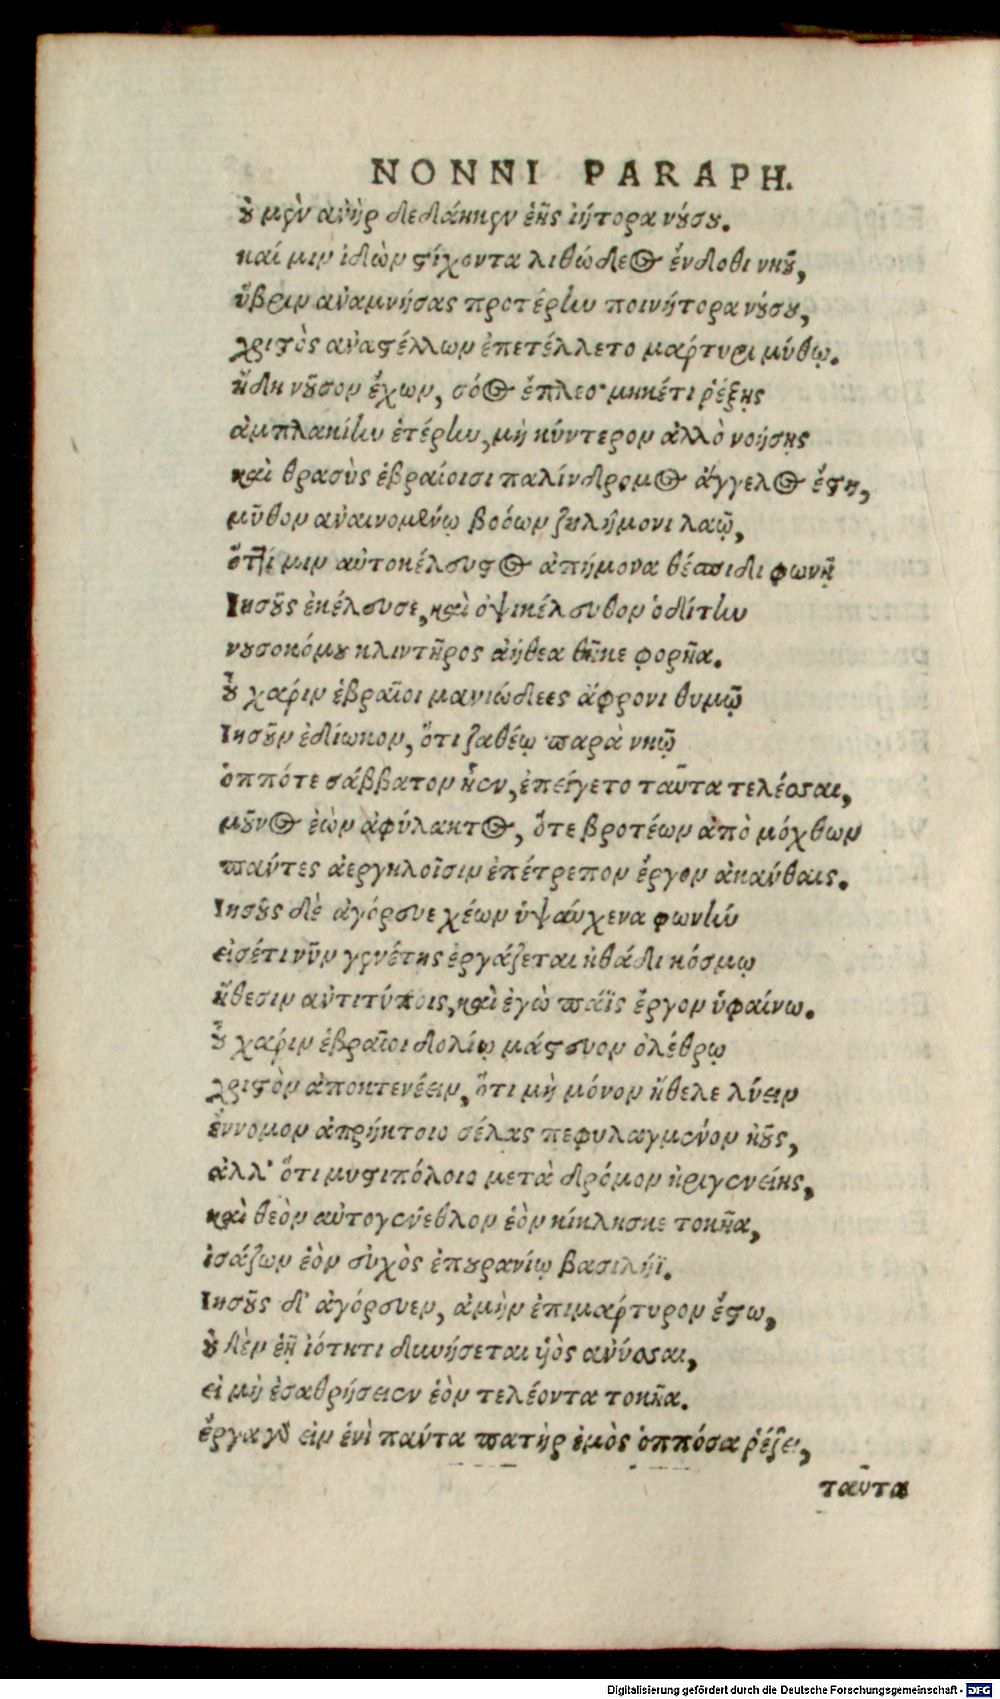 NONNI PARAPH.
οὐ μὲν ἀνὴρ δεδάηκεν ἑῆς ἰήτορα νόσου.
καί μιν ἰδὼν στίχοντα λιθώδεος ἔνδοθι νηοῦ,
ὕβριν ἀναμνήσας προτέρην ποινήτορα νούσου,
χριστὸς ἀναστέλλων ἐπετέλλετο μάρτυρι μύθῳ.
ἤδη νοῦσον ἔχων, σόος ἔπλεο· μηκέτι ῥέξῃς
ἀμπλακίην ἑτέρην, μὴ κύντερον ἄλλο νοήσῃς
καὶ θρασὺς ἑβραίοισι παλίνδρομος ἄγγελος ἔστη,
μῦθον ἀναινομένῳ βοόων ζηλήμονι λαῷ,
ὅττί μιν αὐτοκέλευστος ἀπήμονα θέσπιδι φωνῇ
Ἰησοῦς ἐκέλευσε, καὶ ὀψικέλευθον ὁδίτην
νουσοκόμου κλιντῆρος ἀήθεα θῆκε φορῆα.
οὗ χάριν ἑβραῖοι μανιώδεες ἄφρονι θυμῷ
Ἰησοῦν ἐδίωκον, ὅτι ζαθέῳ παρὰ νηῷ
ὁππότε σάββατον ἦεν, ἐπείγετο ταῦτα τελέσσαι,
μοῦνος ἐὼν ἀφύλακτος, ὅτε βροτέων ἀπὸ μόχθων
πάντες ἀεργηλοῖσιν ἐπέτρεπον ἔργον ἀκάνθαις.
Ἰησοῦς δὲ ἀγόρευε χέων ὑψαύχενα φωνήν
εἰσέτι νῦν γενέτης ἐργάζεται ἠθάδι κόσμῳ
ἤθεσιν ἀντιτύποις, καὶ ἐγὼ πάϊς ἔργον ὑφαίνω.
οὗ χάριν ἑβραῖοι δολίῳ μάστευον ὀλέθρῳ
χριστὸν ἀποκτενέειν, ὅτι μὴ μόνον ἤθελε λύειν
ἔννομον ἀπρήκτοιο σέλας πεφυλαγμένον ἠοῦς,
ἀλλ' ὅτι μυστιπόλοιο μετὰ δρόμον ἠριγενείης,
καὶ θεὸν αὐτογένεθλον ἑὸν κίκλησκε τοκῆα,
ἰσάζων ἑὸν εὖχος ἐπουρανίῳ βασιλῆϊ.
Ἰησοῦς δ' ἀγόρευεν, ἀμὴν ἐπιμάρτυρον ἔστω,
οὐδὲν ἑῇ ἰότητι δυνήσεται ὑὸς ἀνύσσαι,
εἰ μὴ ἐσαθρήσειεν ἑὸν τελέοντα τοκῆα.
ἔργα γὰρ εἰν ἑνὶ πάντα πατὴρ ἐμὸς ὁππόσα ῥέζει,
ταῦτα
Digitalisierung gefördert durch die Deutsche Forschungsgemeinschaft - DFG